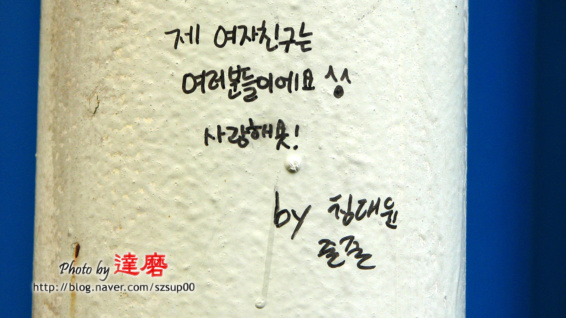 제 여자친구는
여러분들이에요 ^^
사랑해욧!
by 청대윤
Photo by 達磨
http://blog.naver.com/szsup00